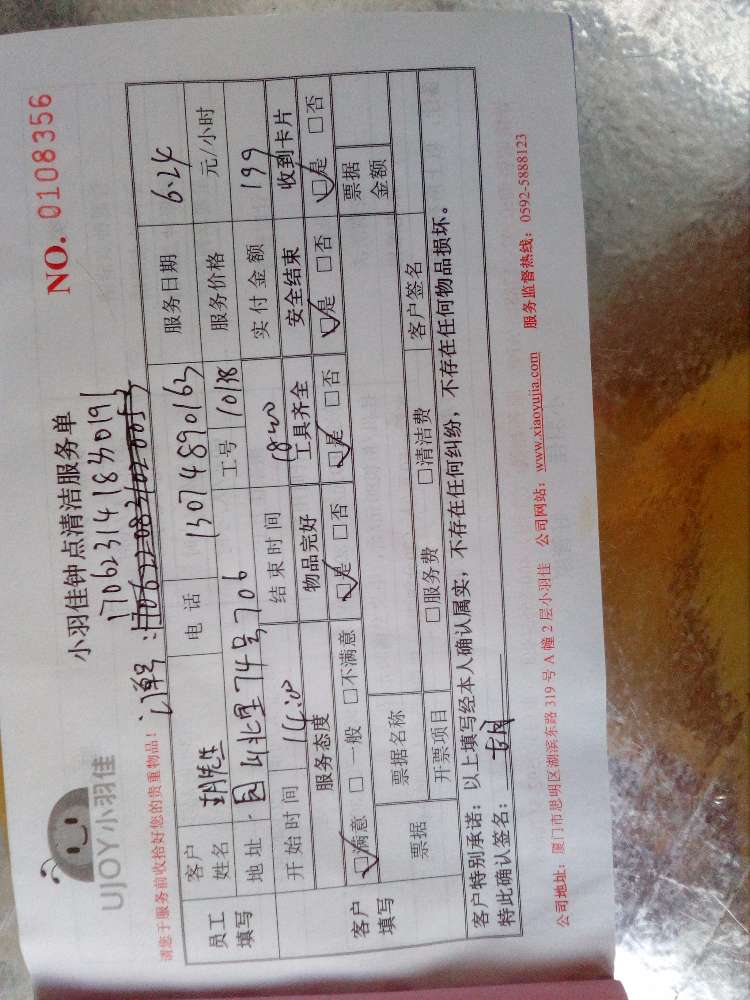 UJOY小羽佳
小羽佳钟点清洁服务单
NO. 0108356
170623141830191
请您于服务前收拾好您的贵重物品!
订单号:
员工填写
客户姓名 胡先生 电话 13074890163 服务日期 6.24
地址 园山北里74号706 工号 1038 服务价格 元/小时
开始时间 14:00 结束时间 1800 实付金额 199
客户填写
服务态度 物品完好 工具齐全 安全结束 收到卡片
☑满意 □一般 □不满意 ☑是 □否 ☑是 □否 ☑是 □否 ☑是 □否
票据 票据名称 票据金额
开票项目 □服务费 □清洁费 客户签名
客户特别承诺:以上填写经本人确认属实,不存在任何纠纷,不存在任何物品损坏。
特此确认签名:
公司地址:厦门市思明区湖滨东路319号A幢2层小羽佳 公司网站:www.xiaoyujia.com 服务监督热线:0592-5888123